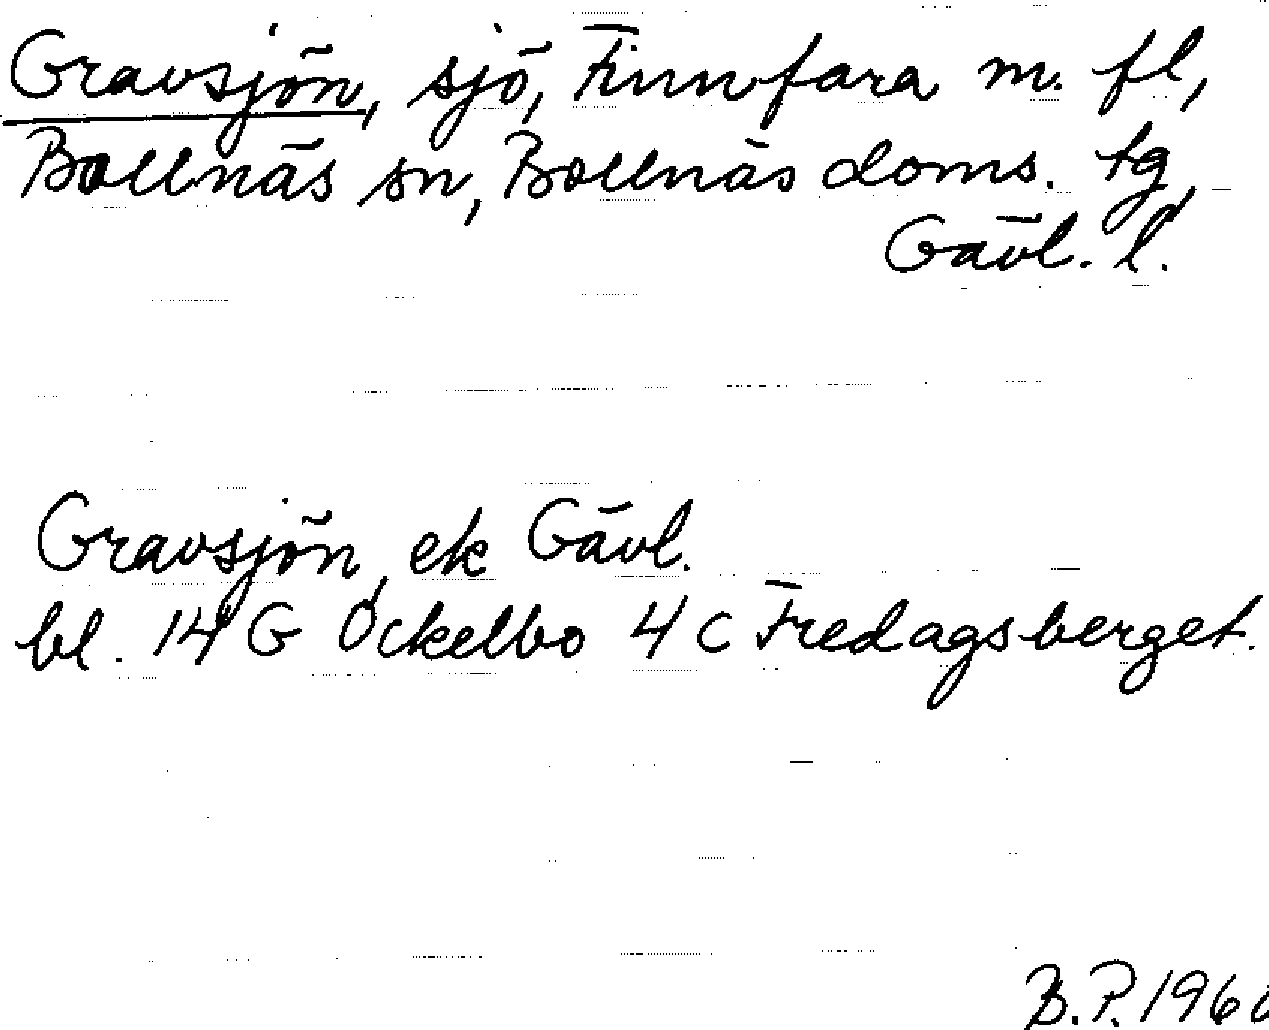 Gravsjön, sjö, Finnfara m. fl,
Bollnäs sn, Bollnäs doms. tg,
Gävl. l.
Gravsjön, ek Gävl.
bl. 14 G Ockelbo 4 c Fredagsberget.
B.P. 196